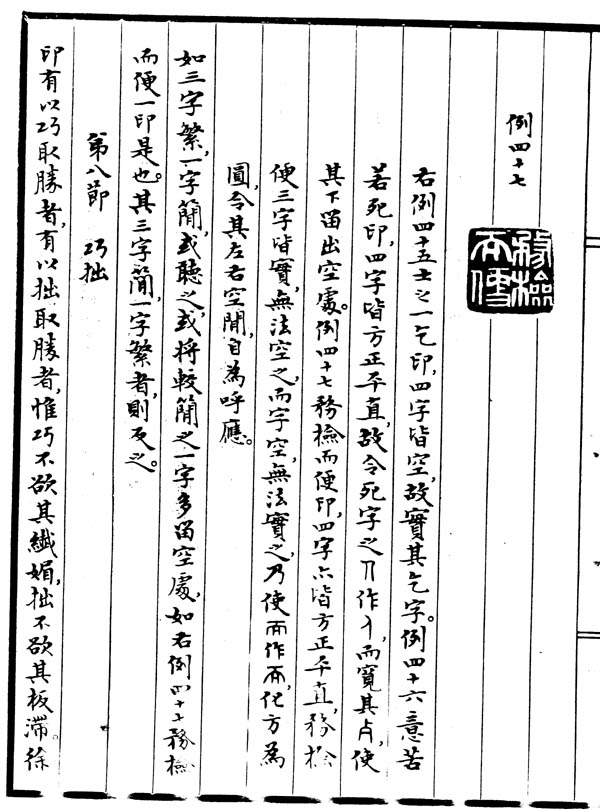 例四十七
務檢而便
右例四十五士之一乞印，四字皆空，故實其乞字。例四十六意苦
若死印，四字皆方正平直，故令死字之丌作人，而寬其占，使
其下留出空處。例四十七務檢而便印，四字亦皆方正平直，務檢
便三字皆實，無法空之，而字空，無法實之，乃使而作而，化方為
圓，令其左右空間，自為呼應。
如三字繁，一字簡，或聽之，或將較簡之一字多留空處，如右例四十七務檢
而便一印是也。其三字簡，一字繁者，則反之。
第八節　巧拙
印有以巧取勝者，有以拙取勝者，惟巧不欲其纖媚，拙不欲其板滯。徐